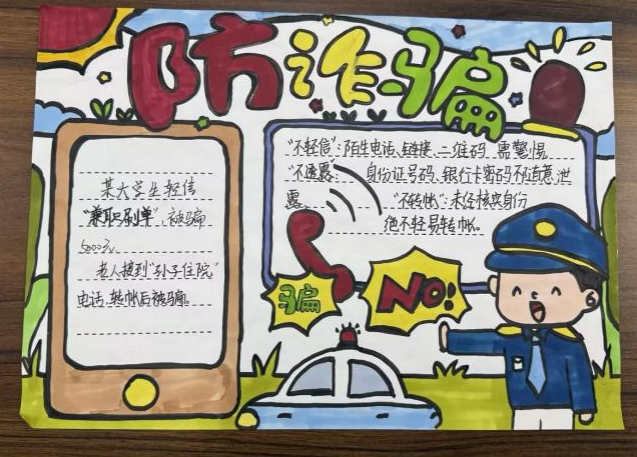 防诈骗
某大学生轻信
"兼职刷单",被骗
5000元
老人接到"孙子住院"
电话,转帐后被骗
"不轻信":陌生电话、链接、二维码 需警惕
"不透露" 身份证号码、银行卡密码不随意泄
露。 "不转帐":未经核实身份
绝不轻易转帐。
骗
NO!